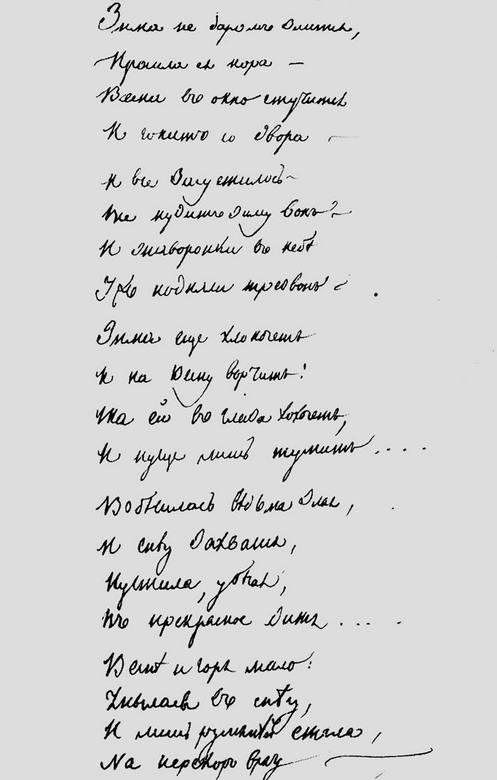 Зима не даромъ злится,
Прошла ея пора —
Весна въ окно стучится
И гонитъ со двора —
И все засуетилось —
Все нудитъ зиму вонъ —
И жаворонки въ небѣ
Ужъ подняли трезвонъ — .
Зима еще хлопочетъ
И на Весну ворчитъ!
Та ей въ глаза хохочетъ,
И пуще лишь шумитъ ....
Взбѣсилась вѣдьма злая,
И снѣгу захватя,
Пустила, убѣгая,
Въ прекрасное дитя ....
Веснѣ и горя мало:
Умылася въ снѣгу,
И лишь румянѣй стала,
На перекоръ врагу —